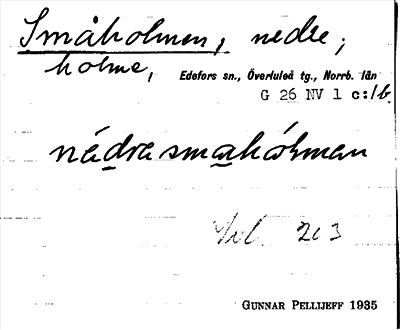 Småholmen, nedre;
holme,
Edefors sn., Överluleå tg., Norrb. län
G 26 NV 1 c:/b.
nédrasmahólman
Vol. 263
GUNNAR PELLIJEFF 1935